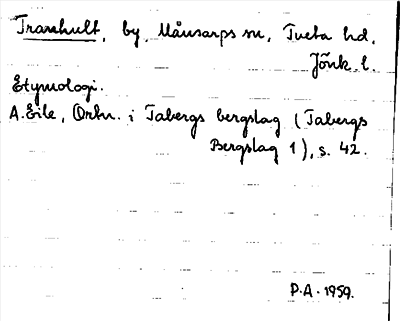 Tranhult, by, Månsarps sn, Tveta hd,
Jönk. l.
Etymologi.
A. Eile, Ortn. i Tabergs bergslag (Tabergs
Bergslag 1), s. 42.
P.A. 1959.